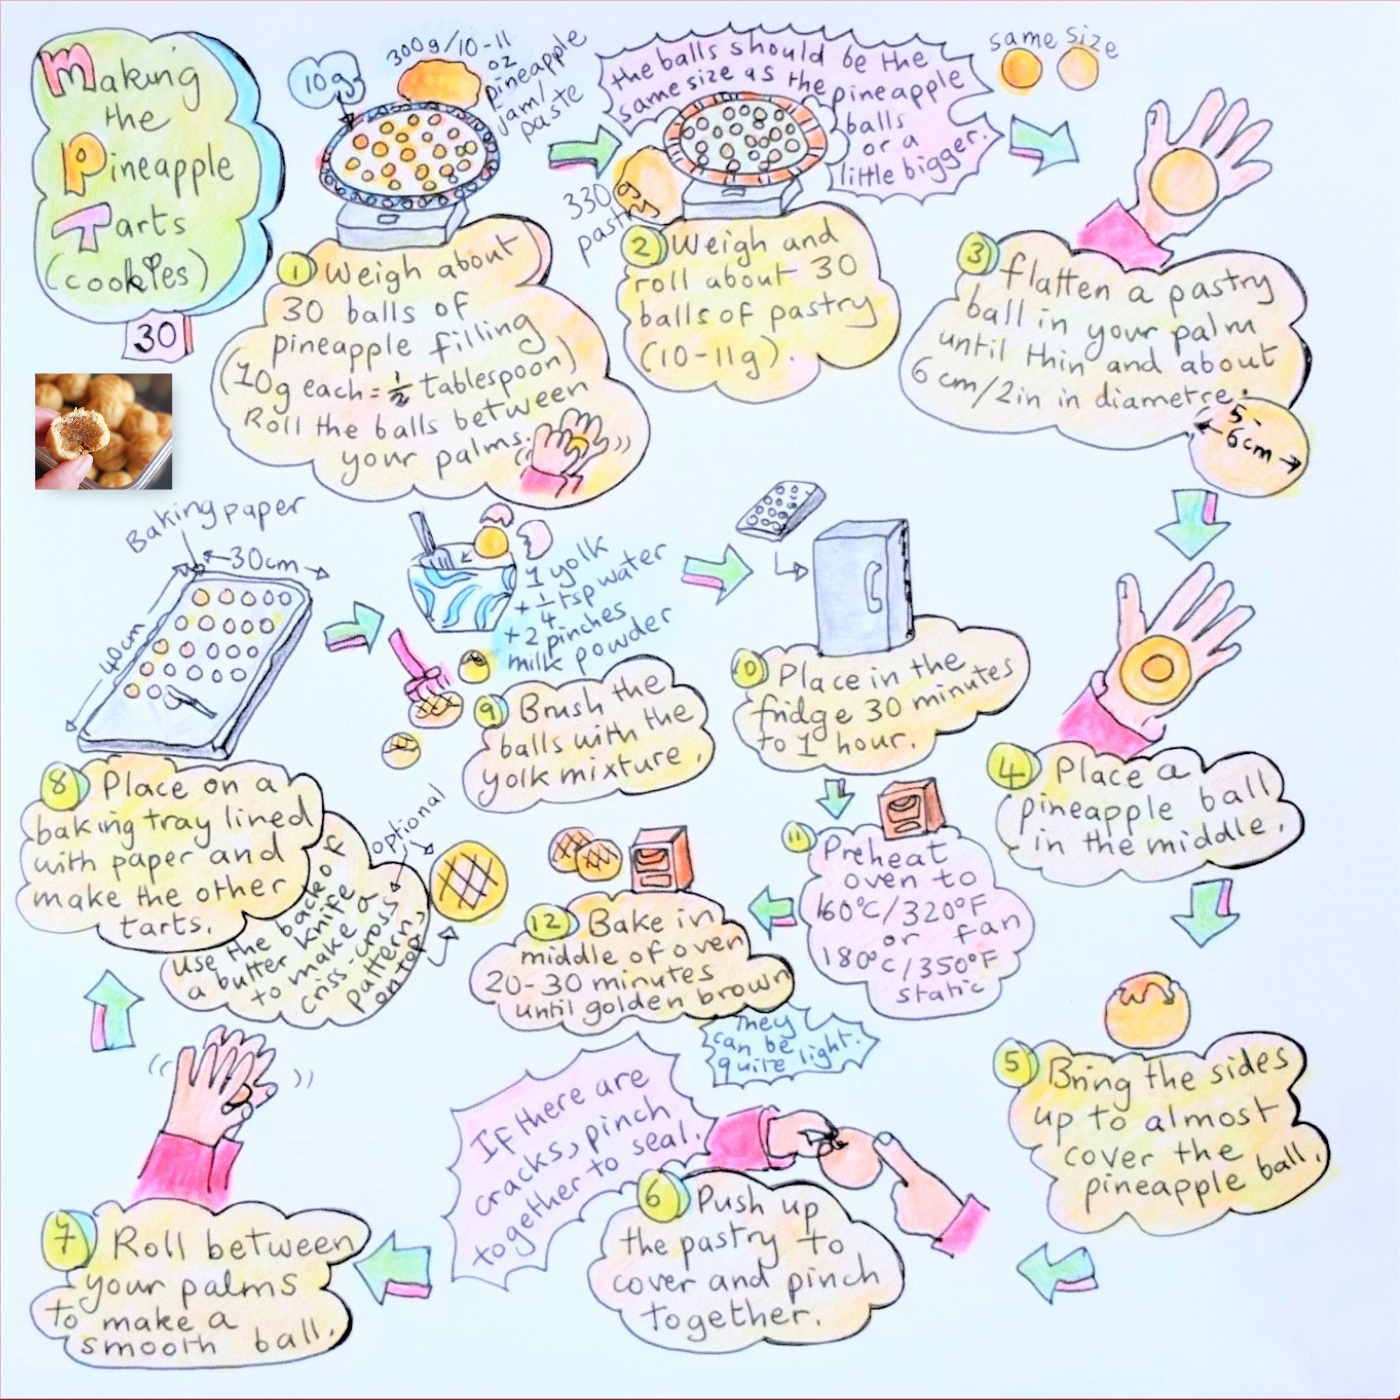 Making
the
Pineapple
Tarts
(cookies)
30
10g
300g/10-11
oz
pineapple
jam/
paste
1 Weigh about
30 balls of
pineapple filling
(10g each = 1/2 tablespoon)
Roll the balls between
your palms.
the balls should be the
same size as the pineapple
balls
or a
little bigger.
330g
pastry
2 Weigh and
roll about 30
balls of pastry
(10-11g).
same size
3 flatten a pastry
ball in your palm
until thin and about
6cm/2in in diametre.
5-
6cm
4 Place a
pineapple ball
in the middle.
5 Bring the sides
up to almost
cover the
pineapple ball.
6 Push up
the pastry to
cover and pinch
together.
If there are
cracks, pinch
together to seal.
7 Roll between
your palms
to make a
smooth ball.
Baking paper
30cm
40cm
8 Place on a
baking tray lined
with paper and
make the other
tarts.
use the back of
a butter knife
to make a
criss-cross
pattern,
on top.
optional
1 yolk
+ 1/4 tsp water
+ 2 pinches
milk powder
9 Brush the
balls with the
yolk mixture.
10 Place in the
fridge 30 minutes
to 1 hour.
11 Preheat
oven to
160°C/320°F
or fan
180°C/350°F
static
12 Bake in
middle of oven
20-30 minutes
until golden brown
They
can be
quite light.